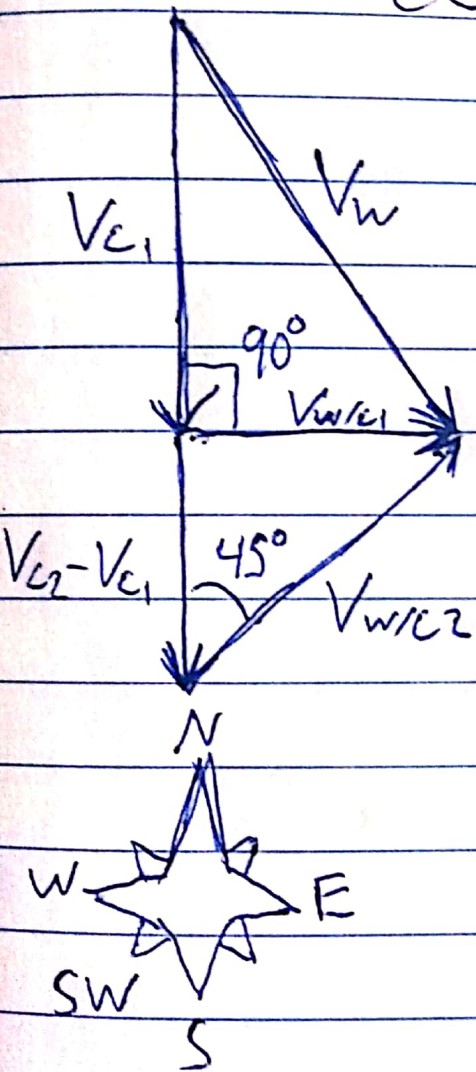 V_W
V_C1
90°
V_W/C1
V_C2-V_C1
45°
V_W/C2
N
W
E
SW
S